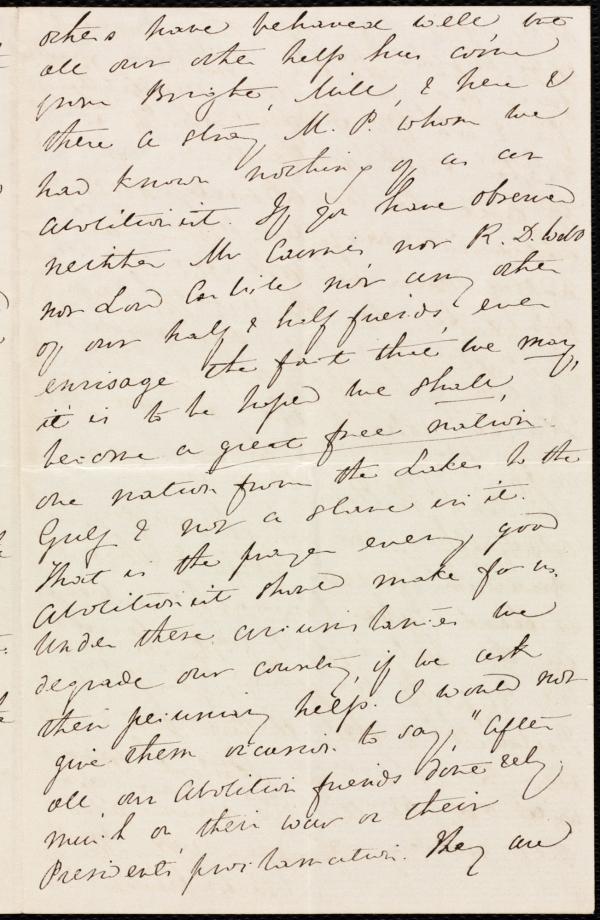 others have behaved well but
all our other help has come
from Bright, Mill, & here &
there a stray M. P. whom we
had known nothing of as an
Abolitionist. If you have observed
neither Mr Cairnes nor R. D. Webb
nor Lord Carlisle nor any other
of our half & half friends, even
envisage the fact that we may,
it is to be hoped we shall,
become a great free nation
one nation from the Lakes to the
Gulf & not a slave in it.
That is the prayer every good
Abolitionist should make for us.
Under these circumstances we
degrade our country, if we ask
their pecuniary help. I would not
give them occasion to say, "After
all our Abolition friends don't rely
much on their war or their
President's proclamation. They are